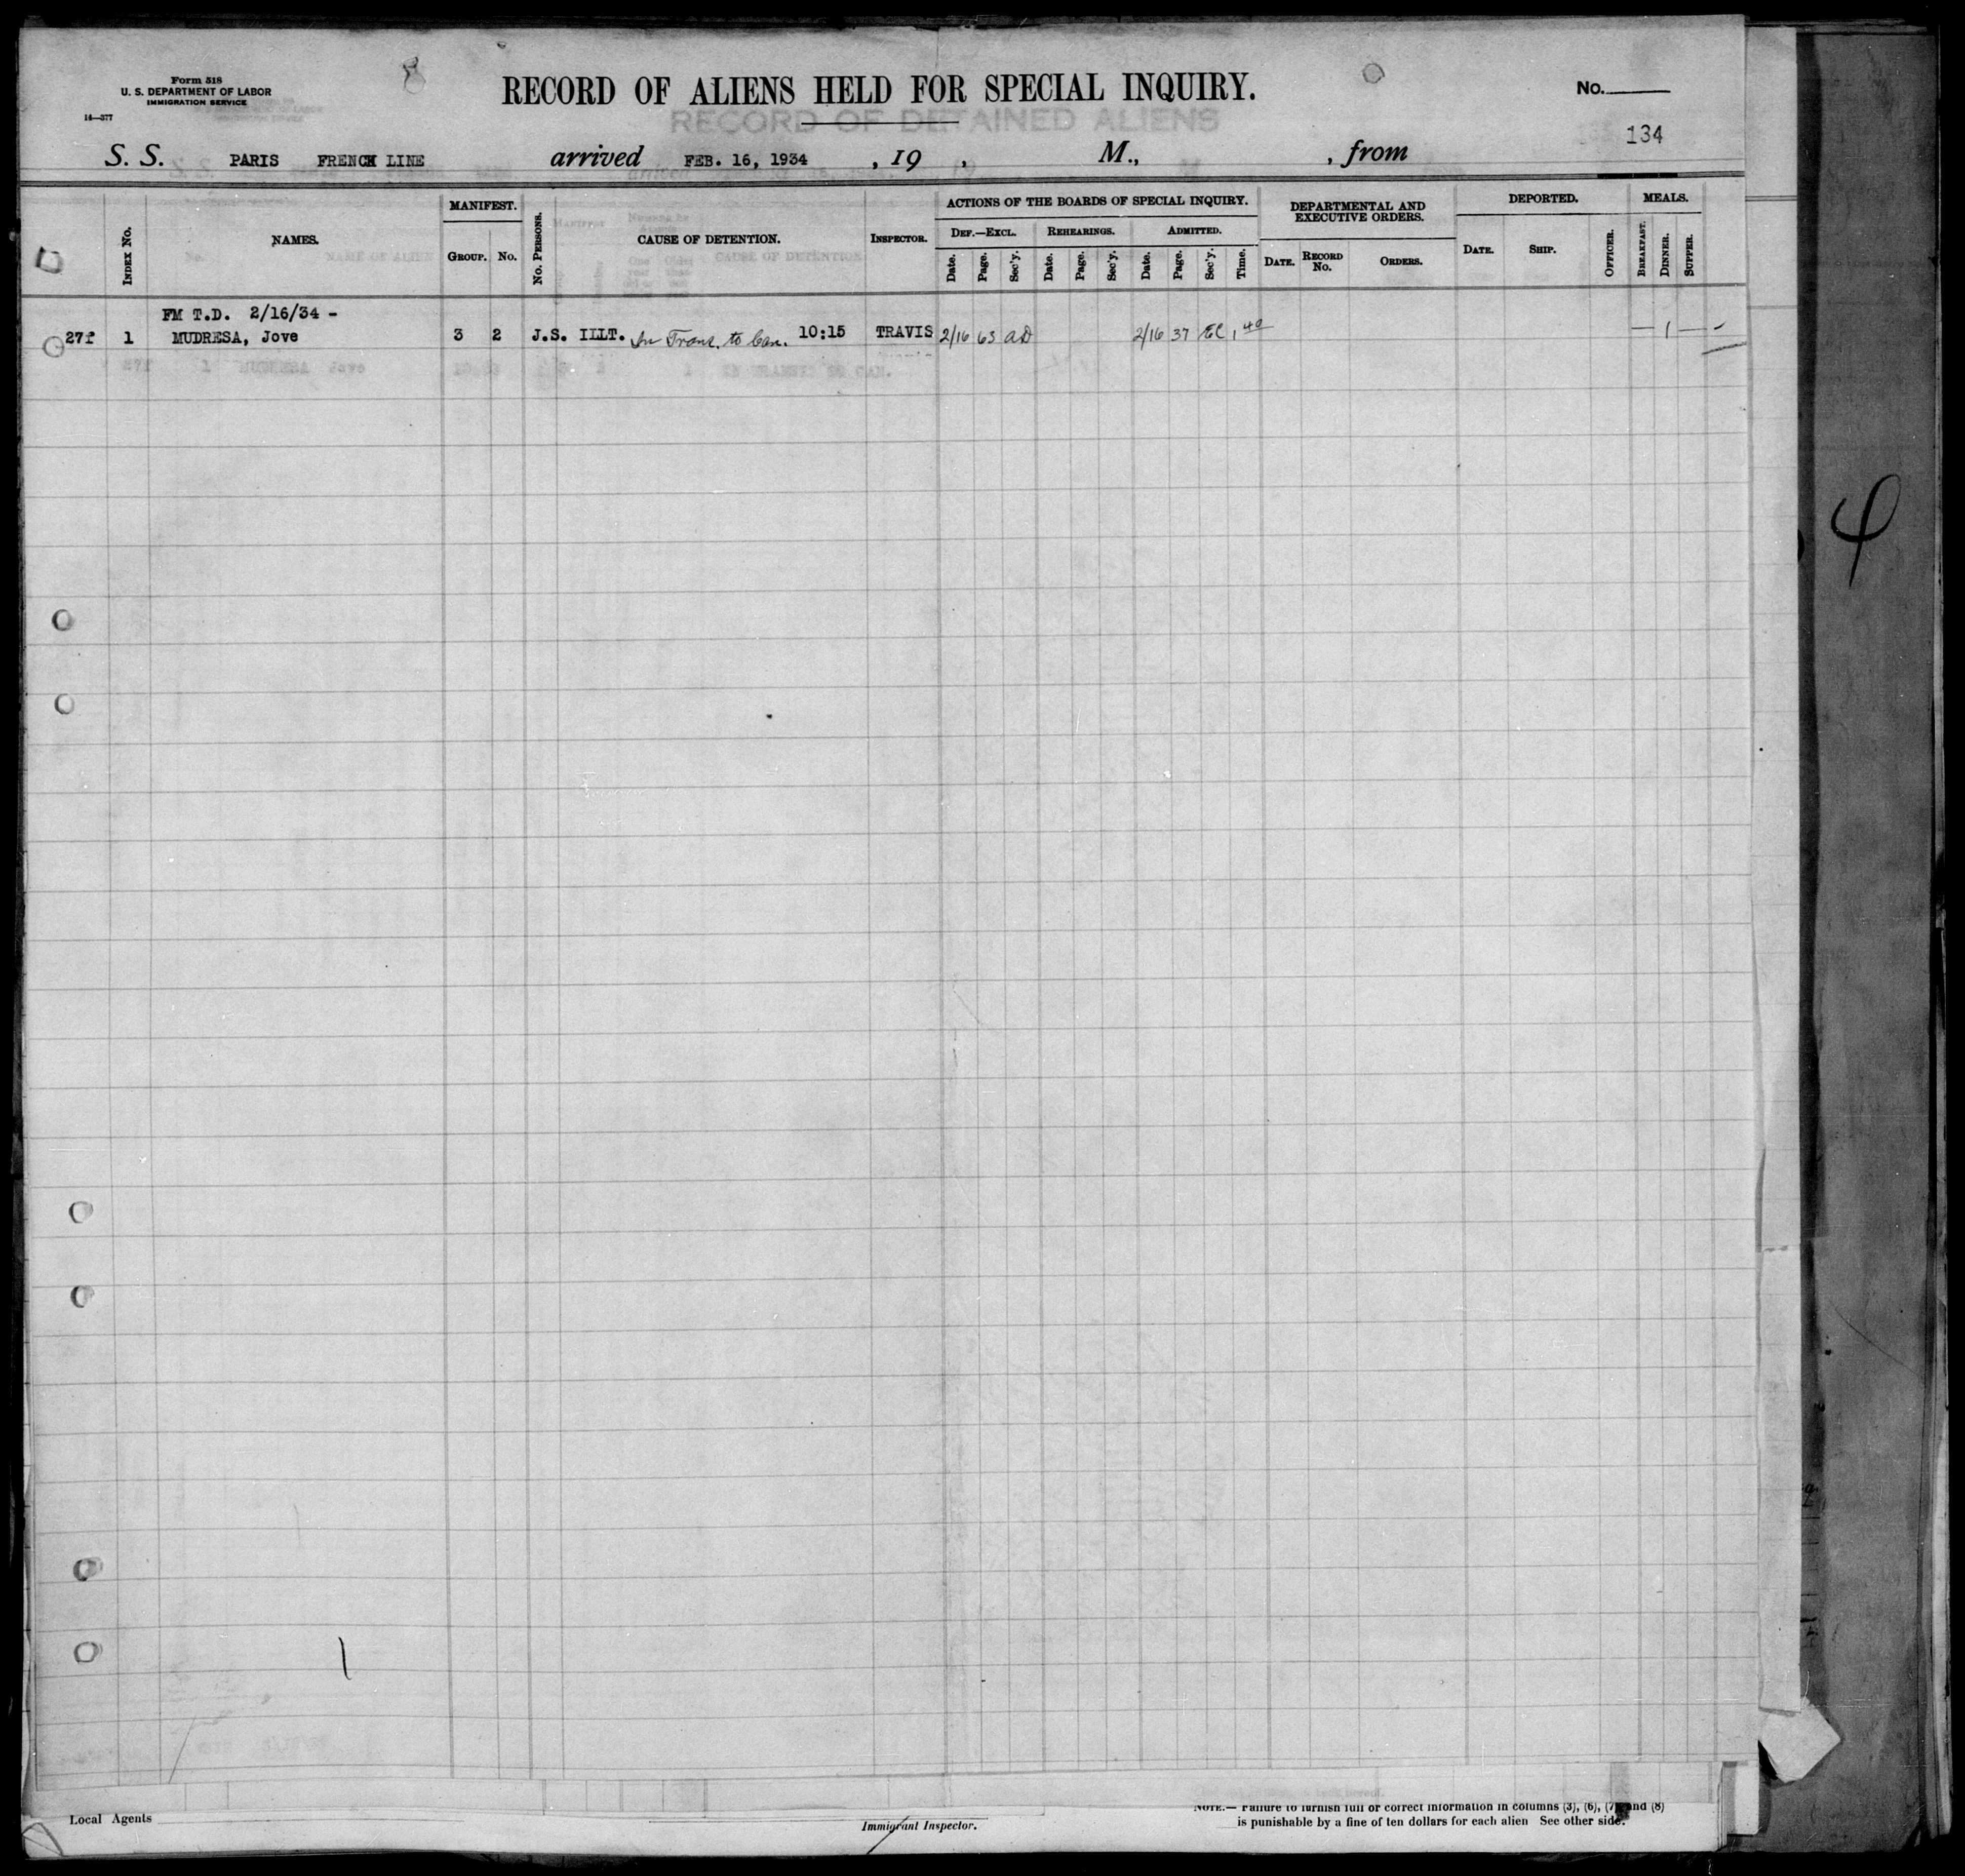 Form 518
U. S. DEPARTMENT OF LABOR
IMMIGRATION SERVICE
14—377
RECORD OF ALIENS HELD FOR SPECIAL INQUIRY.
No.
RECORD OF DETAINED ALIENS
134
S. S. PARIS FRENCH LINE arrived FEB. 16, 1934 , 19 , M., , from
INDEX No.
NAMES.
MANIFEST.
GROUP. No.
No. PERSONS.
CAUSE OF DETENTION.
INSPECTOR.
ACTIONS OF THE BOARDS OF SPECIAL INQUIRY.
DEF.—EXCL. REHEARINGS. ADMITTED.
Date. Page. Sec'y. Date. Page. Sec'y. Date. Page. Sec'y. Time.
DEPARTMENTAL AND
EXECUTIVE ORDERS.
DATE. RECORD No. ORDERS.
DEPORTED.
DATE. SHIP. OFFICER.
MEALS.
BREAKFAST. DINNER. SUPPER.
NAME OF ALIEN
CAUSE OF DETENTION
FM T.D. 2/16/34 -
27f 1 MUDRESA, Jove 3 2 J.S. IILT. In Trans. to Can. 10:15 TRAVIS 2/16 63 AD 2/16 37 EC 1 40 — 1 —
27f 1 MUDRESA Jove
4
Local Agents
Immigrant Inspector.
NOTE.— Failure to furnish full or correct information in columns (3), (6), (7) and (8)
is punishable by a fine of ten dollars for each alien See other side.